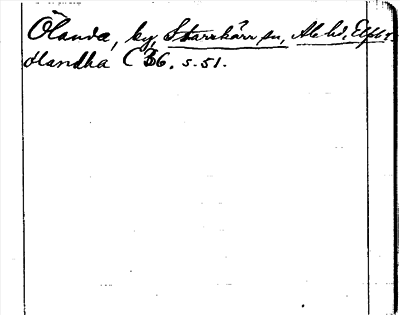 Ölanda, by, Starrkärr sn, Ale hd, Elfsb.
Olandha C 36. s. 51.